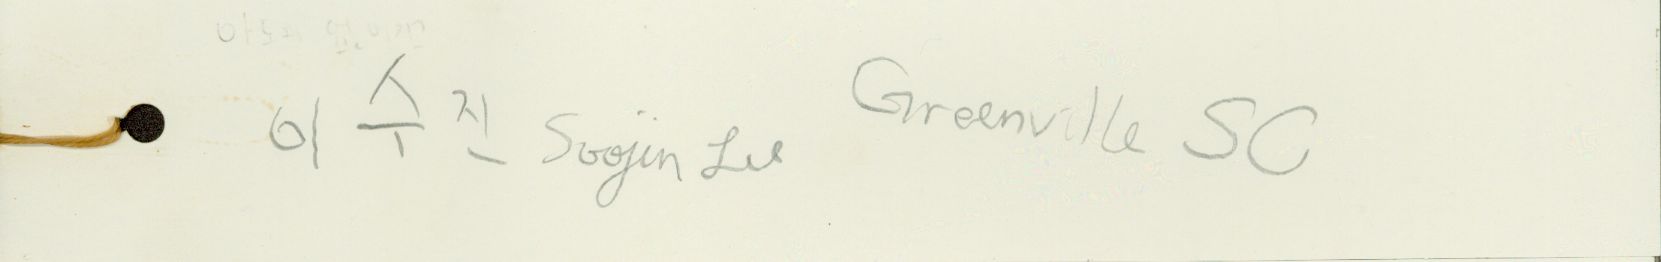 이수진 Soojin Lee Greenville SC